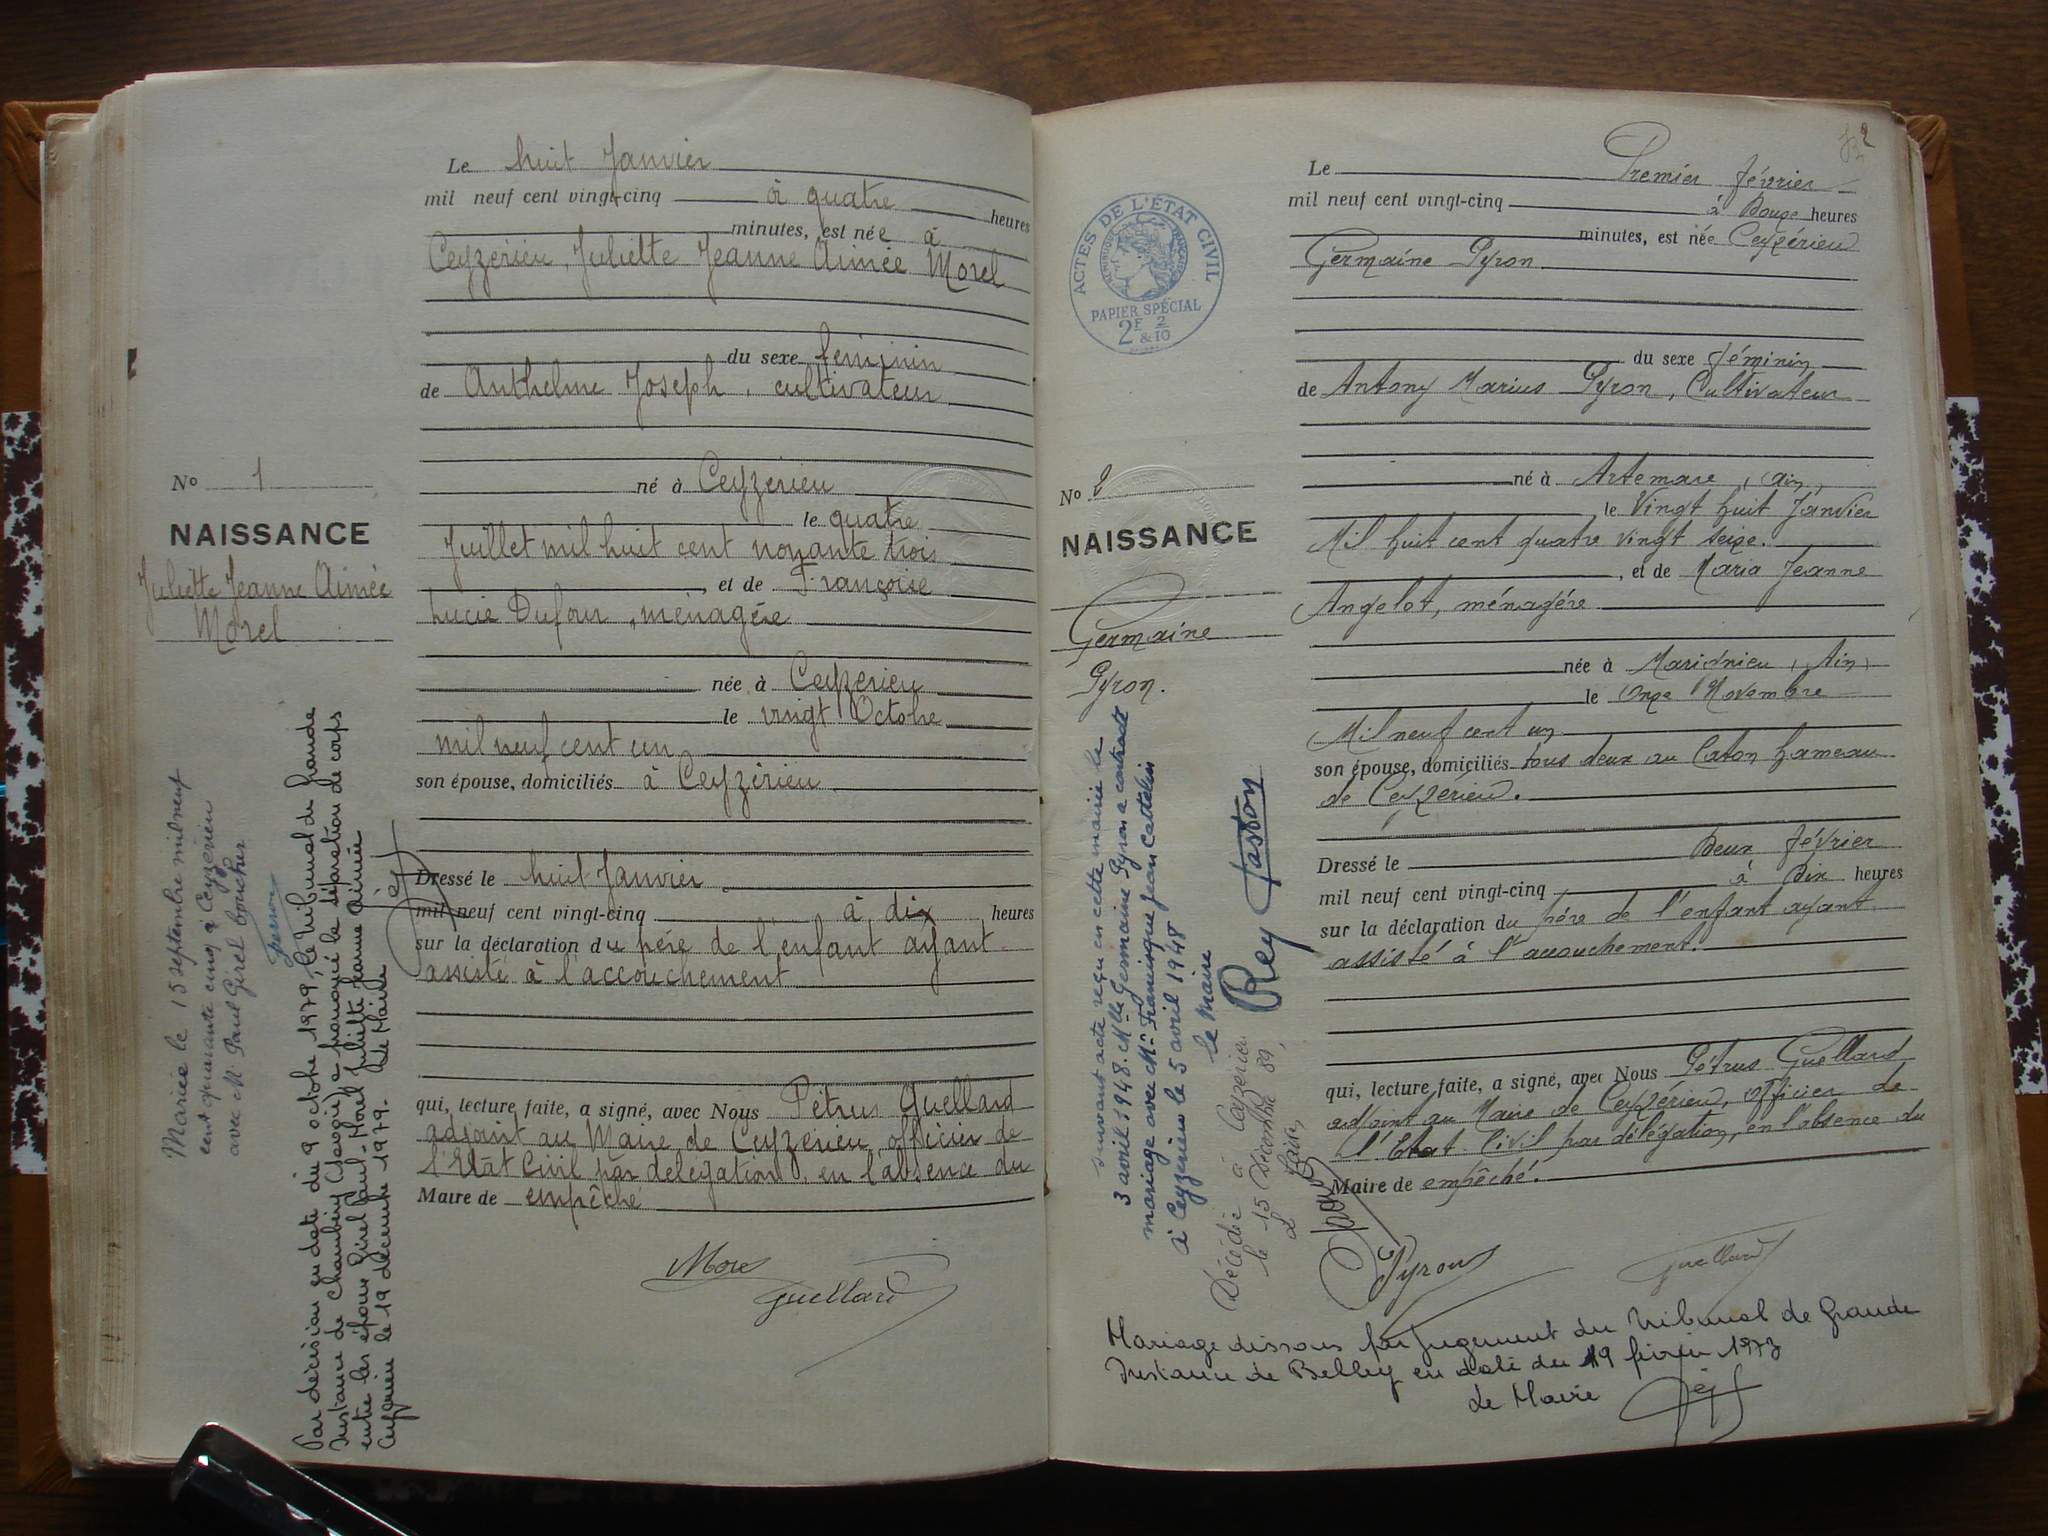 Le huit Janvier
mil neuf cent vingt-cinq à quatre heures
minutes, est née à
Ceyzérieu, Juliette Jeanne Aimée Morel
du sexe féminin
de Anthelme Joseph, cultivateur
né à Ceyzérieu
le quatre
Juillet mil huit cent nonante trois
, et de Françoise
Lucie Dufour, ménagère
née à Ceyzérieu
le vingt Octobre
mil neuf cent un
son épouse, domiciliés à Ceyzérieu
Dressé le huit Janvier
mil neuf cent vingt-cinq à dix heures
sur la déclaration du père de l'enfant ayant
assisté à l'accouchement
qui, lecture faite, a signé, avec Nous Pétrus Guellard
adjoint au Maire de Ceyzérieu officier de
l'Etat Civil par délégation, en l'absence du
Maire de empêché
Morel
Guellard
No 1
NAISSANCE
Juliette Jeanne Aimée
Morel
Mariée le 15 septembre mil neuf
cent quarante cinq à Ceyzérieu
avec Mr Paul Girel boucher
Par décision en date du 9 octobre 1979, le Tribunal de Grande
Instance de Chambéry (Savoie) a prononcé la séparation de corps
entre les époux Girel Paul, Morel Juliette Jeanne Aimée
Ceyzérieu le 19 décembre 1979. Le Maire
2
Le Premier février
mil neuf cent vingt-cinq à Douze heures
minutes, est née Ceyzérieu
Germaine Pyron
du sexe féminin
de Antony Marius Pyron, Cultivateur
né à Artemare, (Ain)
le Vingt huit Janvier
Mil huit cent quatre vingt seize.
, et de Maria Jeanne
Angelot, ménagère
née à Marignieu (Ain)
le Onze Novembre
Mil neuf cent un
son épouse, domiciliés tous deux au Caton hameau
de Ceyzérieu.
Dressé le Deux février
mil neuf cent vingt-cinq à Dix heures
sur la déclaration du père de l'enfant ayant
assisté à l'accouchement.
qui, lecture faite, a signé, avec Nous Pétrus Guellard
adjoint au Maire de Ceyzérieu, officier de
l'Etat Civil par délégation, en l'absence du
Maire de empêché.
Pyron
Guellard
ACTES DE L'ÉTAT CIVIL
RÉPUBLIQUE FRANÇAISE
PAPIER SPÉCIAL
2F & 2/10
No 2
NAISSANCE
Germaine
Pyron.
suivant acte reçu en cette mairie le
3 avril 1948. Mlle Germaine Pyron a contracté
mariage avec Mr Franscisque Jean Cattelin
à Ceyzérieu le 5 avril 1948
le Maire
Rey Gaston
Décédée à Ceyzérieu
le 15 Décembre 89,
Le Maire,
Mariage dissous par jugement du Tribunal de Grande
Instance de Belley en date du 19 février 1973
Le Maire